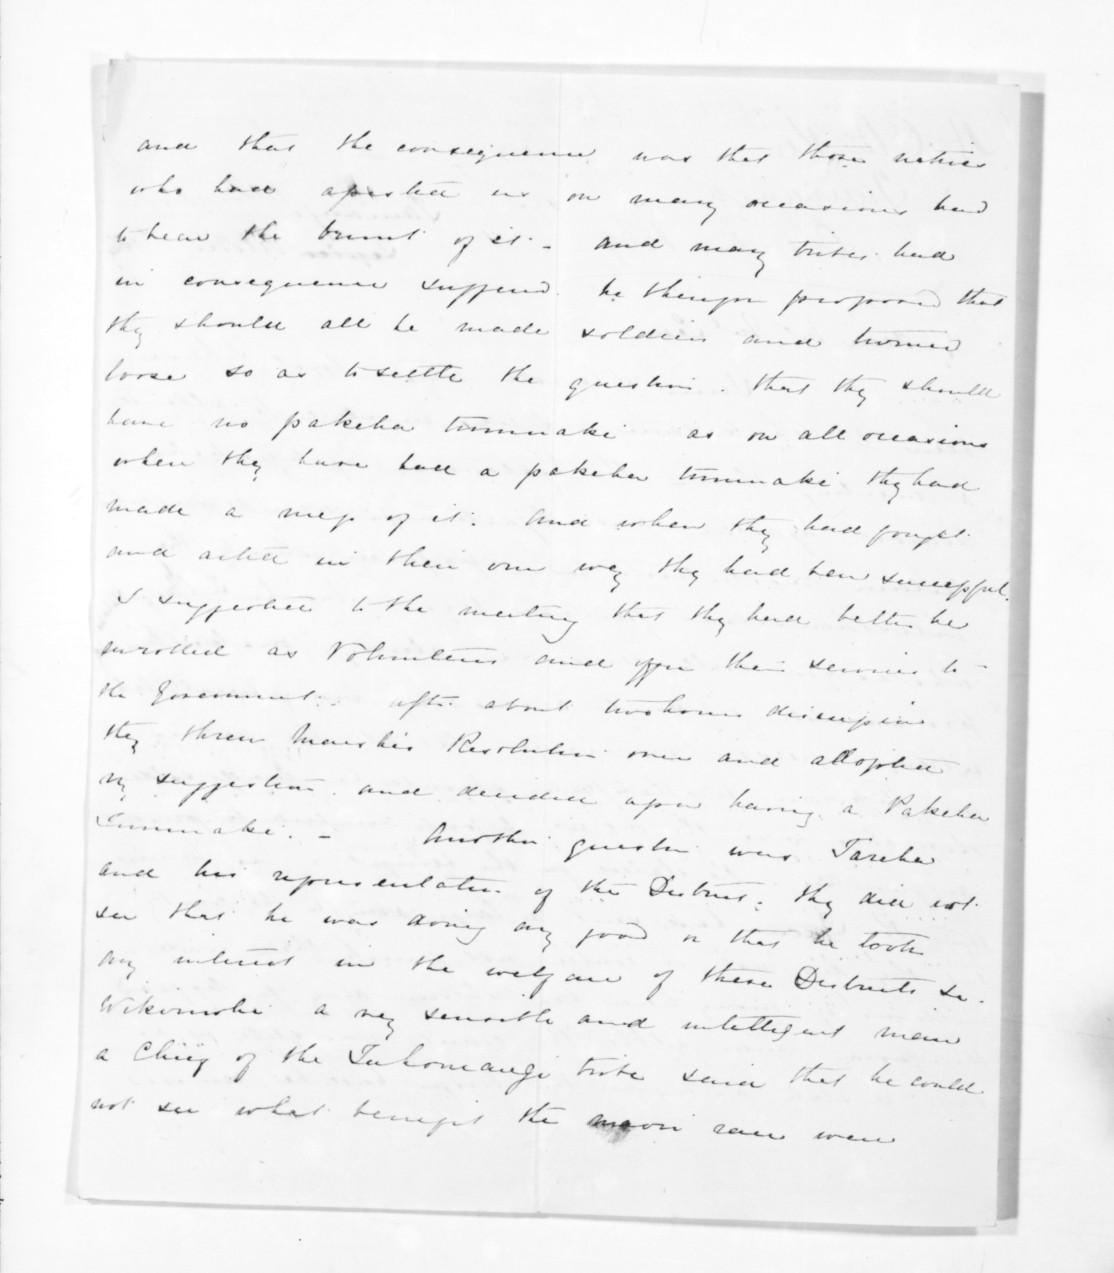 and that the consequence was that those natives
who had assisted us on many occasions had
to bear the brunt of it - and many tribes had
in consequence suffered. he therefore proposed that
they should all be made soldiers and turned
loose so as to settle the question. that they should
have no pakeha tumuaki as on all occasions
when they have had a pakeha tumuaki they had
made a mess of it. And when they had fought
and acted in their own way they had been successful.
I suggested to the meeting that they had better be
enrolled as Volunteers and offer their services to
the Government. after about two hours discussion
they threw Resolution over and adopted
my suggestion and decided upon having a Pakeha
Tumuaki. - Another question was Tareha
and his representation of the District. they did not
see that he was doing any good or that he took
any interest in the welfare of these Districts &c.
a very sensible and intelligent man
a Chief of the tribe said that he could
not see what benefit the maori race were